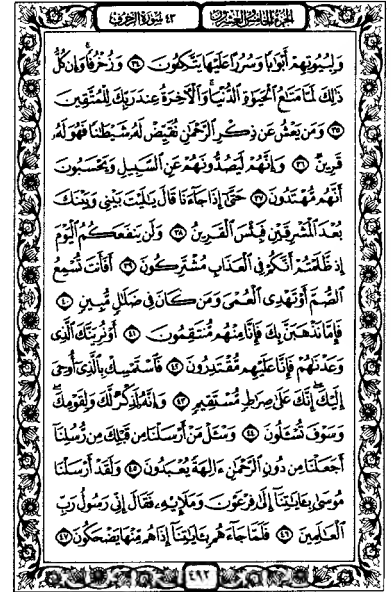 الجزء الخامس والعشرون ٤٣ سورة الزخرف
وَلِبُيُوتِهِمْ أَبْوَٰبًا وَسُرُرًا عَلَيْهَا يَتَّكِـُٔونَ ٣٤ وَزُخْرُفًا وَإِن كُلُّ
ذَٰلِكَ لَمَّا مَتَٰعُ ٱلْحَيَوٰةِ ٱلدُّنْيَا وَٱلْـَٔاخِرَةُ عِندَ رَبِّكَ لِلْمُتَّقِينَ
٣٥ وَمَن يَعْشُ عَن ذِكْرِ ٱلرَّحْمَٰنِ نُقَيِّضْ لَهُۥ شَيْطَٰنًا فَهُوَ لَهُۥ
قَرِينٌ ٣٦ وَإِنَّهُمْ لَيَصُدُّونَهُمْ عَنِ ٱلسَّبِيلِ وَيَحْسَبُونَ
أَنَّهُم مُّهْتَدُونَ ٣٧ حَتَّىٰٓ إِذَا جَآءَنَا قَالَ يَٰلَيْتَ بَيْنِى وَبَيْنَكَ
بُعْدَ ٱلْمَشْرِقَيْنِ فَبِئْسَ ٱلْقَرِينُ ٣٨ وَلَن يَنفَعَكُمُ ٱلْيَوْمَ
إِذ ظَّلَمْتُمْ أَنَّكُمْ فِى ٱلْعَذَابِ مُشْتَرِكُونَ ٣٩ أَفَأَنتَ تُسْمِعُ
ٱلصُّمَّ أَوْ تَهْدِى ٱلْعُمْىَ وَمَن كَانَ فِى ضَلَٰلٍ مُّبِينٍ ٤٠
فَإِمَّا نَذْهَبَنَّ بِكَ فَإِنَّا مِنْهُم مُّنتَقِمُونَ ٤١ أَوْ نُرِيَنَّكَ ٱلَّذِى
وَعَدْنَٰهُمْ فَإِنَّا عَلَيْهِم مُّقْتَدِرُونَ ٤٢ فَٱسْتَمْسِكْ بِٱلَّذِىٓ أُوحِىَ
إِلَيْكَ إِنَّكَ عَلَىٰ صِرَٰطٍ مُّسْتَقِيمٍ ٤٣ وَإِنَّهُۥ لَذِكْرٌ لَّكَ وَلِقَوْمِكَ
وَسَوْفَ تُسْـَٔلُونَ ٤٤ وَسْـَٔلْ مَنْ أَرْسَلْنَا مِن قَبْلِكَ مِن رُّسُلِنَآ
أَجَعَلْنَا مِن دُونِ ٱلرَّحْمَٰنِ ءَالِهَةً يُعْبَدُونَ ٤٥ وَلَقَدْ أَرْسَلْنَا
مُوسَىٰ بِـَٔايَٰتِنَآ إِلَىٰ فِرْعَوْنَ وَمَلَإِي۟هِۦ فَقَالَ إِنِّى رَسُولُ رَبِّ
ٱلْعَٰلَمِينَ ٤٦ فَلَمَّا جَآءَهُم بِـَٔايَٰتِنَآ إِذَا هُم مِّنْهَا يَضْحَكُونَ ٤٧
٤٩٢